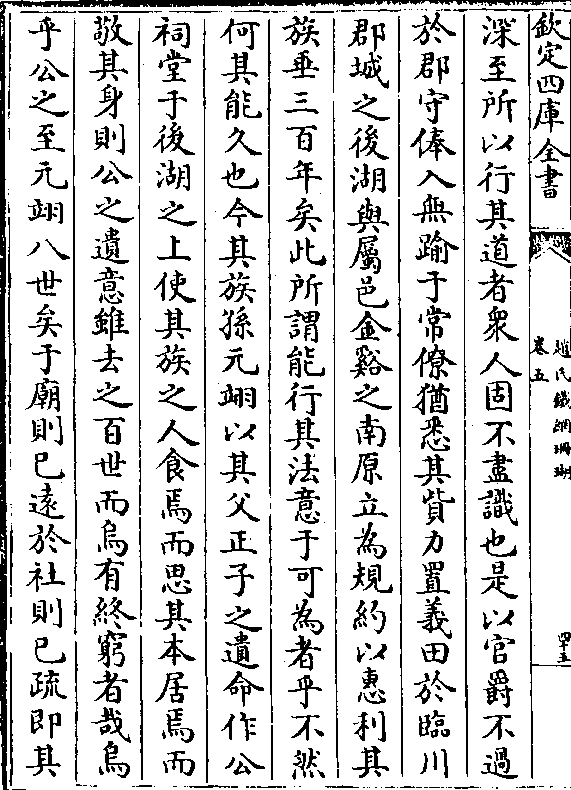 欽定四庫全書
趙氏鐵網珊瑚
卷五
四十五
深至所以行其道者衆人固不盡識也是以官爵不過
於郡守俸入無踰于常僚猶悉其貲力置義田於臨川
郡城之後湖與屬邑金谿之南原立為規約以惠利其
族垂三百年矣此所謂能行其法意于可為者乎不然
何其能久也今其族孫元翊以其父正子之遺命作公
祠堂于後湖之上使其族之人食焉而思其本居焉而
敬其身則公之遺意雖去之百世而烏有終窮者哉烏
乎公之至元翊八世矣于廟則已遠於社則已疏即其